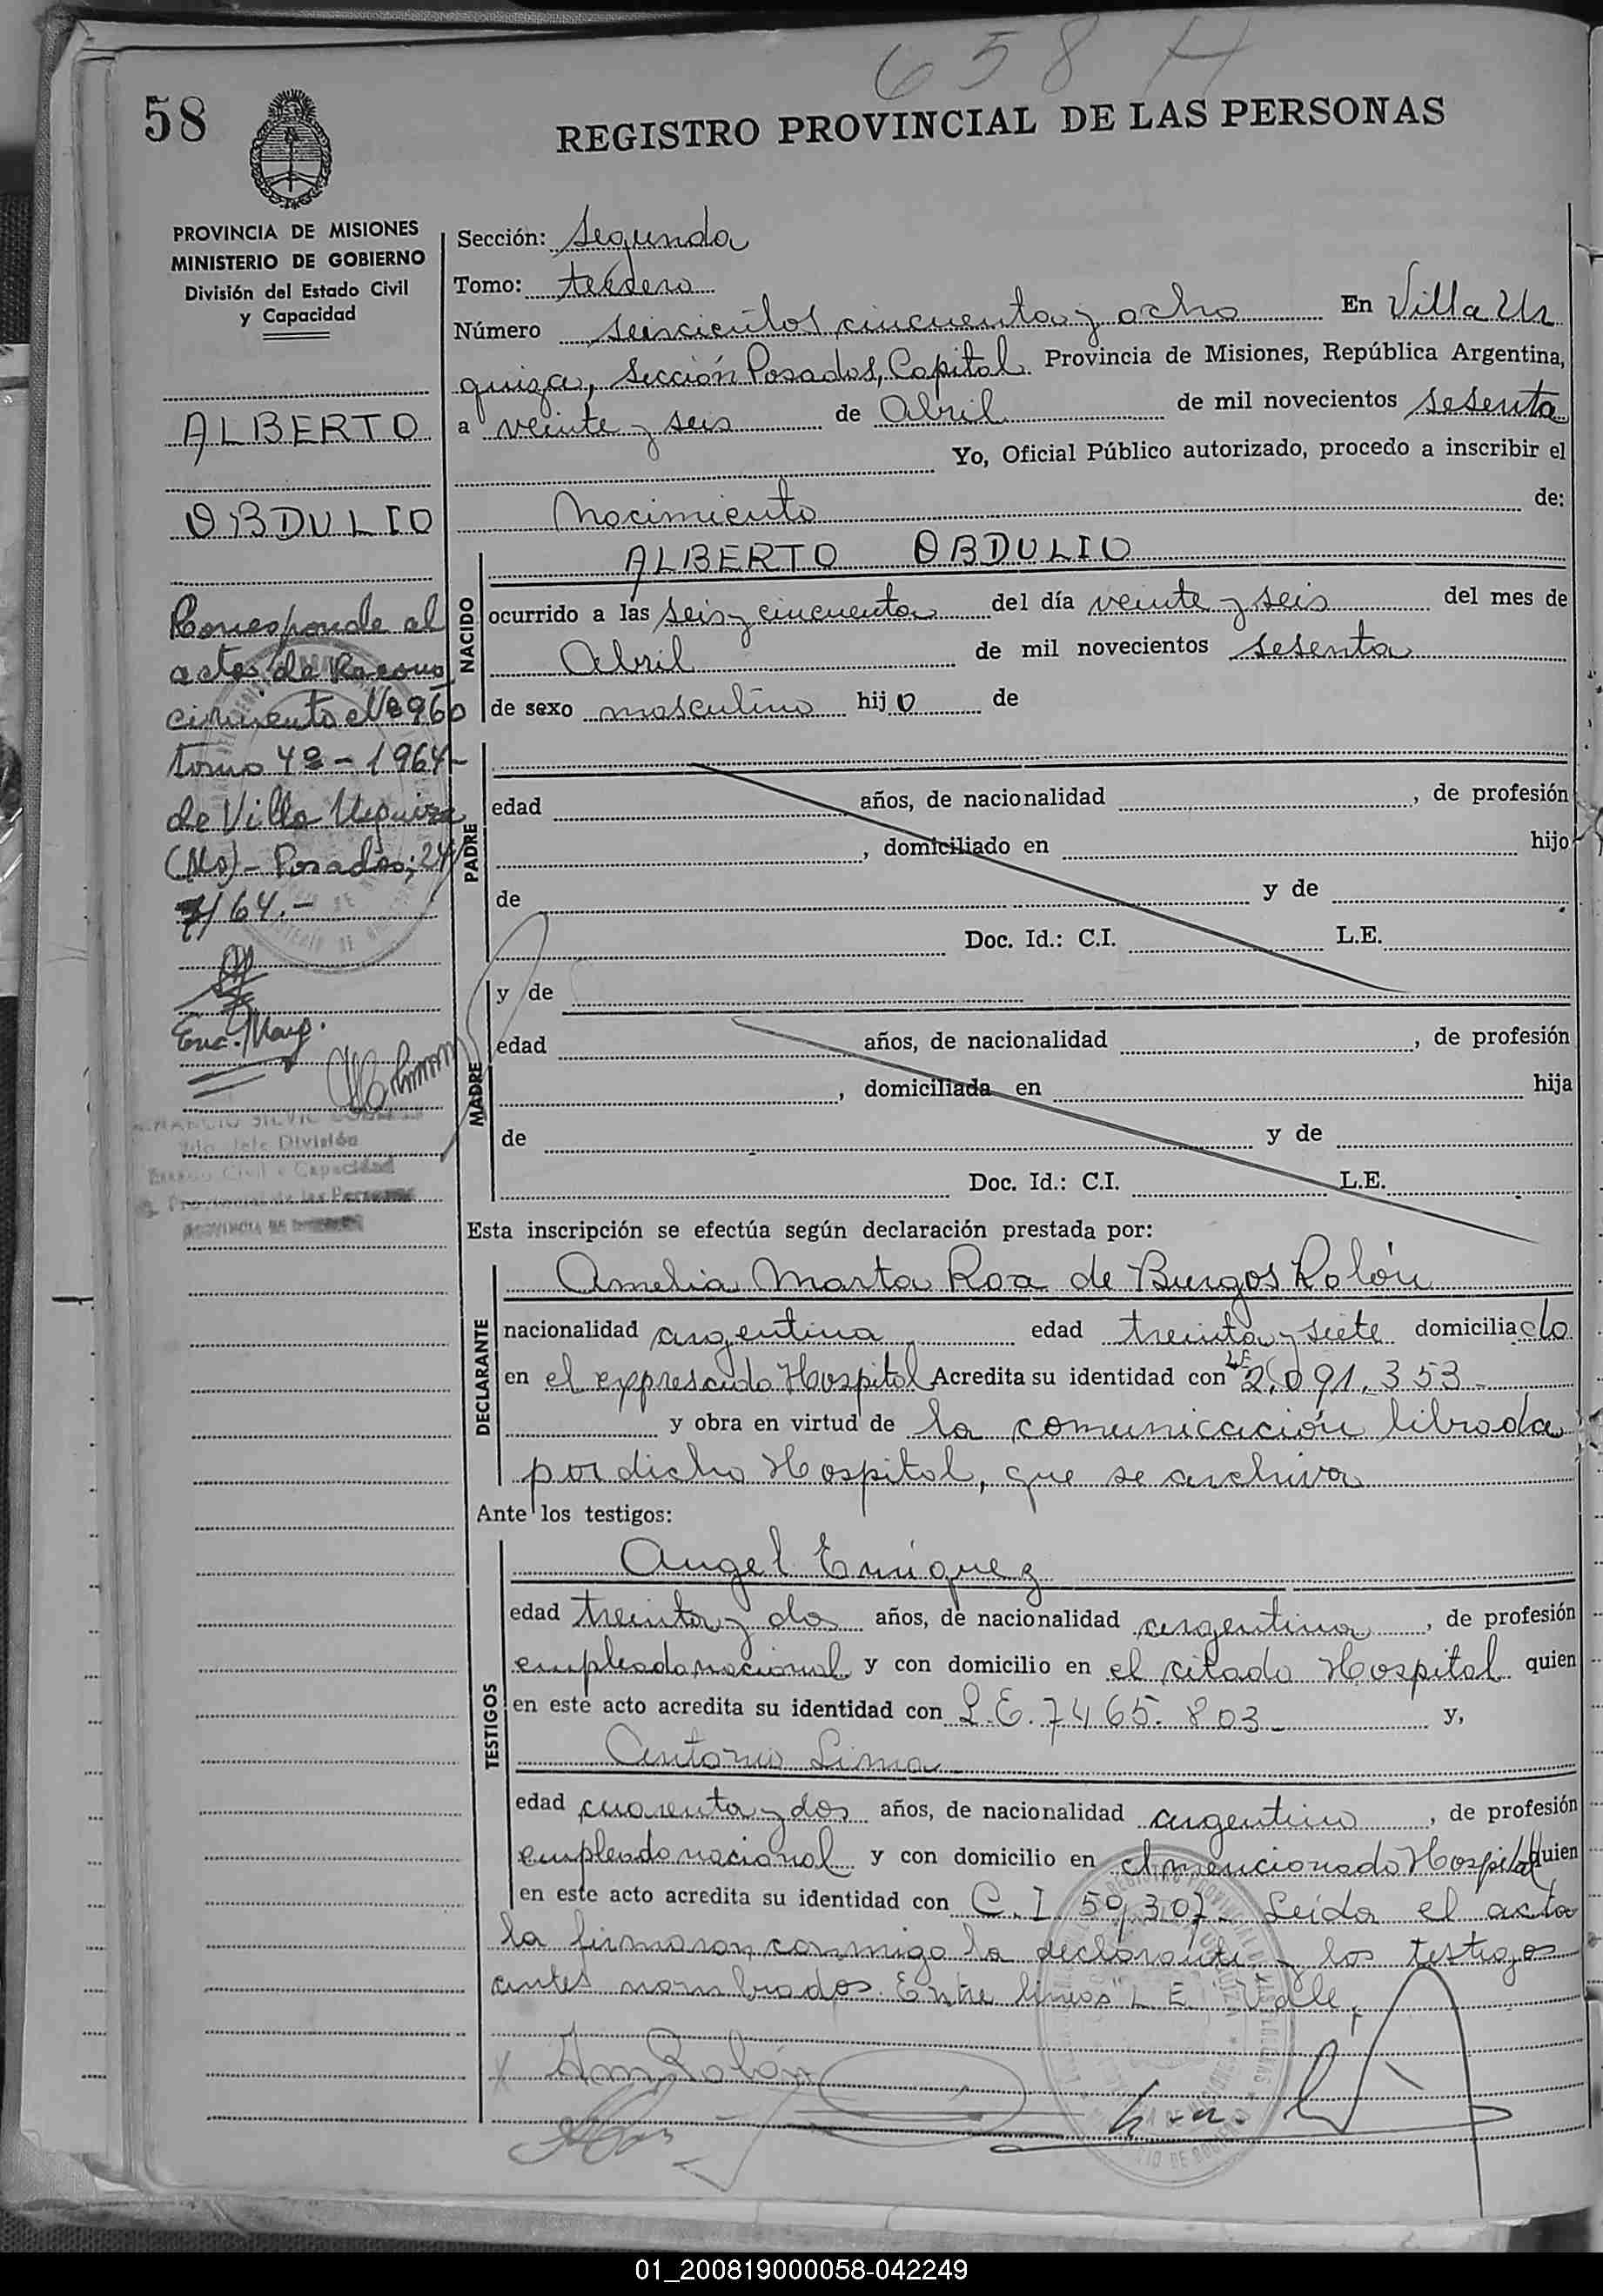 658 H
58
REGISTRO PROVINCIAL DE LAS PERSONAS
PROVINCIA DE MISIONES
MINISTERIO DE GOBIERNO
División del Estado Civil
y Capacidad
ALBERTO
OBDULIO
Corresponde al
acta de Recono
cimiento Nº 960
tomo 4º - 1964 -
de Villa Urquiza
(Ms) - Posadas; 24/
7/64.-
Enc. Marg.
2do Jefe División
Estado Civil y Capacidad
R. Provincial de las Personas
PROVINCIA DE MISIONES
Sección: Segunda
Tomo: tercero
Número seiscientos cincuenta y ocho En Villa Ur
quiza, Sección Posadas, Capital. Provincia de Misiones, República Argentina,
a veinte y seis de Abril de mil novecientos sesenta
Yo, Oficial Público autorizado, procedo a inscribir el
Nacimiento de:
NACIDO
ALBERTO OBDULIO
ocurrido a las seis y cincuenta del día veinte y seis del mes de
Abril de mil novecientos sesenta
de sexo masculino hijo de
PADRE
edad años, de nacionalidad , de profesión
, domiciliado en hijo
de y de
Doc. Id.: C.I. L.E.
MADRE
y de
edad años, de nacionalidad , de profesión
, domiciliada en hija
de y de
Doc. Id.: C.I. L.E.
Esta inscripción se efectúa según declaración prestada por:
DECLARANTE
Amelia Marta Roa de Burgos Rolón
nacionalidad argentina edad treinta y siete domiciliado
en el expresado Hospital Acredita su identidad con LE 2.091.353-
y obra en virtud de la comunicación librada
por dicho Hospital, que se archiva
Ante los testigos:
TESTIGOS
Angel Enriquez
edad treinta y dos años, de nacionalidad argentina, de profesión
empleado nacional y con domicilio en el citado Hospital quien
en este acto acredita su identidad con L.E. 7465.803- y,
Antonio Lima
edad cuarenta y dos años, de nacionalidad argentino, de profesión
empleado nacional y con domicilio en el mencionado Hospital quien
en este acto acredita su identidad con C.I 50,307. Leída el acta
la firmaron conmigo la declarante y los testigos
antes nombrados. Entre lineas "L E" Vale,
Am Rolón
01_200819000058-042249